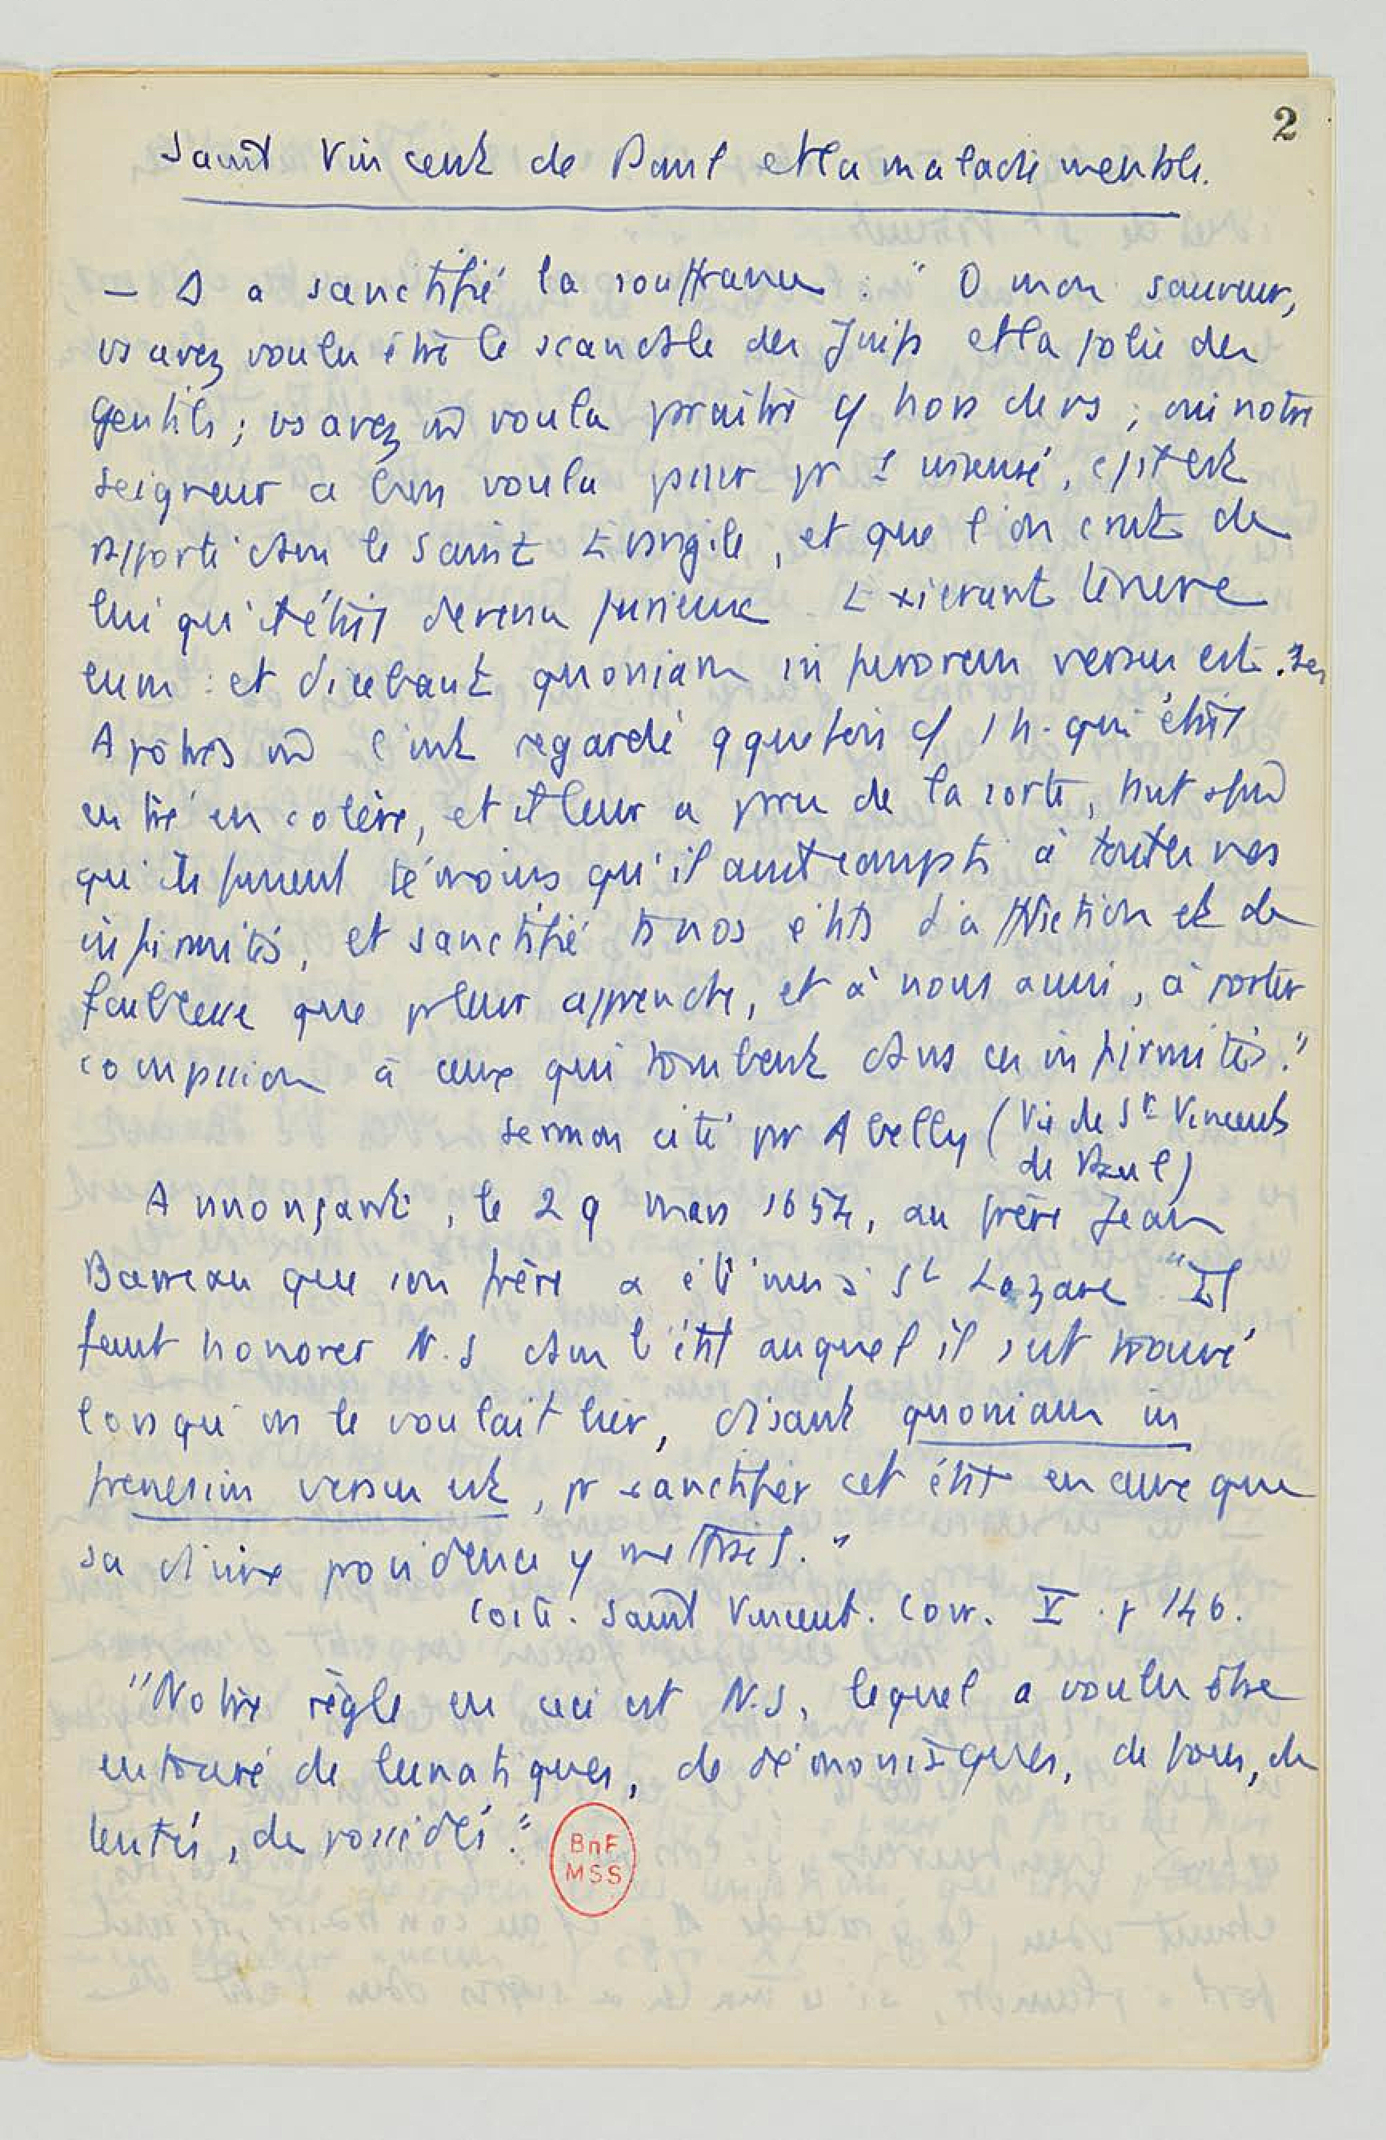 2
Saint Vincent de Paul et la maladie mentale.
— D a sanctifié la souffrance : " O mon sauveur,
vs avez voulu être le scandale des Juifs et la folie des
gentils ; vs avez voulu paraître hors de vs ; oui notre
Seigneur a bien voulu passer pr 1 insensé, c/ il est
rapporté dans le Saint Evangile, et que l'on crut de
lui qu'il était devenu furieux Exierunt tenere
eum : et dicebant quoniam in furorem versus est. Les
Apôtres l'ont regardé qquefois c/ 1 h. qui était
entré en colère, et il leur a paru de la sorte, tant afin
qu'ils fussent témoins qu'il avait compati à toutes nos
infirmités, et sanctifié ts nos états d'affliction et de
faiblesse que pr leur apprendre, et à nous aussi, à porter
compassion à ceux qui tombent dans ces infirmités."
Sermon cité par Abelly (Vie de St Vincent
de Paul)
Annonçant, le 29 mars 1654, au frère Jean
Barreau que son frère a été mis à St Lazare "Il
faut honorer N.S dans l'état auquel il s'est trouvé
lorsqu'on le voulait lier, disant quoniam in
frenesim versus est, pr sanctifier cet état en ceux que
sa divine providence y mettrait."
Coste. Saint Vincent. Corr. V. p 146.
"Notre règle en ceci est N.S, lequel a voulu être
entouré de lunatiques, de démoniaques, de fous, de
tentés, de possédés."
BnF
MSS